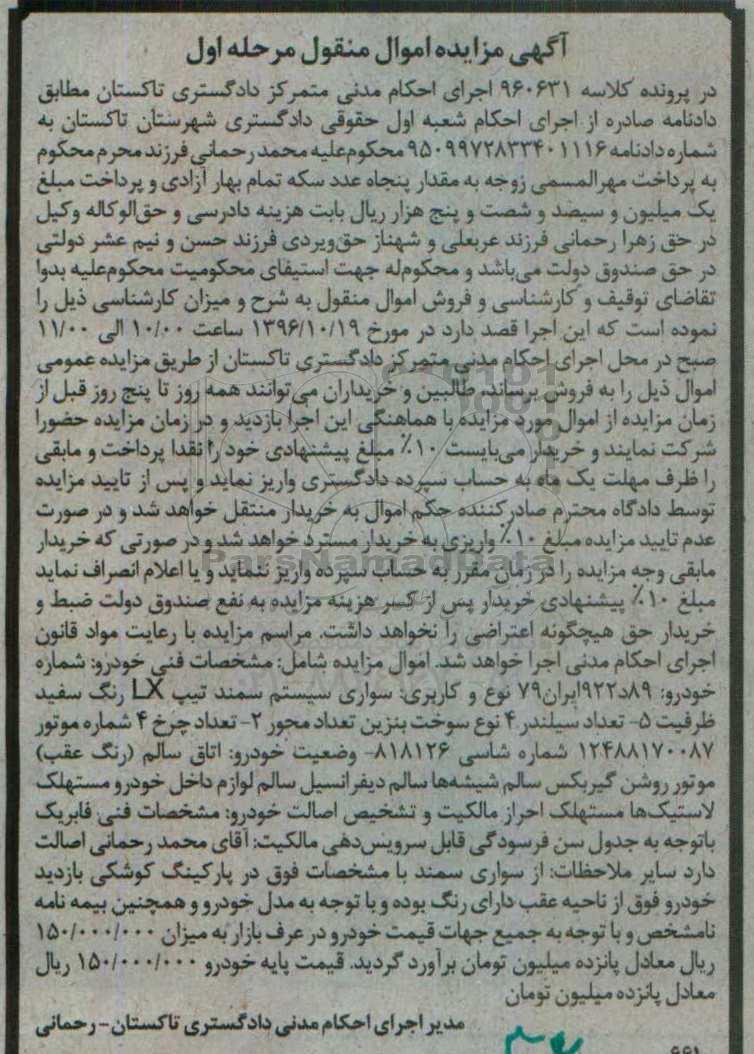 آگهی مزایده اموال منقول مرحله اول
در پرونده کلاسه ۹۶۰۶۳۱ اجرای احکام مدنی متمرکز دادگستری تاکستان مطابق
دادنامه صادره از اجرای احکام شعبه اول حقوقی دادگستری شهرستان تاکستان به
شماره دادنامه ۹۵۰۹۹۷۲۸۳۳۴۰۱۱۱۶ محکوم‌علیه محمد رحمانی فرزند محرم محکوم
به پرداخت مهرالمسمی زوجه به مقدار پنجاه عدد سکه تمام بهار آزادی و پرداخت مبلغ
یک میلیون و سیصد و شصت و پنج هزار ریال بابت هزینه دادرسی و حق‌الوکاله وکیل
در حق زهرا رحمانی فرزند عربعلی و شهناز حق‌ویردی فرزند حسن و نیم عشر دولتی
در حق صندوق دولت می‌باشد و محکوم‌له جهت استیفای محکومیت محکوم‌علیه بدوا
تقاضای توقیف و کارشناسی و فروش اموال منقول به شرح و میزان کارشناسی ذیل را
نموده است که این اجرا قصد دارد در مورخ ۱۳۹۶/۱۰/۱۹ ساعت ۱۰/۰۰ الی ۱۱/۰۰
صبح در محل اجرای احکام مدنی متمرکز دادگستری تاکستان از طریق مزایده عمومی
اموال ذیل را به فروش برساند. طالبین و خریداران می‌توانند همه روز تا پنج روز قبل از
زمان مزایده از اموال مورد مزایده با هماهنگی این اجرا بازدید و در زمان مزایده حضورا
شرکت نمایند و خریدار می‌بایست ۱۰٪ مبلغ پیشنهادی خود را نقدا پرداخت و مابقی
را ظرف مهلت یک ماه به حساب سپرده دادگستری واریز نماید و پس از تایید مزایده
توسط دادگاه محترم صادرکننده حکم اموال به خریدار منتقل خواهد شد و در صورت
عدم تایید مزایده مبلغ ۱۰٪ واریزی به خریدار مسترد خواهد شد و در صورتی که خریدار
مابقی وجه مزایده را در زمان مقرر به حساب سپرده واریز ننماید و یا اعلام انصراف نماید
مبلغ ۱۰٪ پیشنهادی خریدار پس از کسر هزینه مزایده به نفع صندوق دولت ضبط و
خریدار حق هیچگونه اعتراضی را نخواهد داشت. مراسم مزایده با رعایت مواد قانون
اجرای احکام مدنی اجرا خواهد شد. اموال مزایده شامل: مشخصات فنی خودرو: شماره
خودرو: ۸۹د۹۲۲ایران۷۹ نوع و کاربری: سواری سیستم سمند تیپ LX رنگ سفید
ظرفیت ۵- تعداد سیلندر ۴ نوع سوخت بنزین تعداد محور ۲- تعداد چرخ ۴ شماره موتور
۱۲۴۸۸۱۷۰۰۸۷ شماره شاسی ۸۱۸۱۲۶- وضعیت خودرو: اتاق سالم (رنگ عقب)
موتور روشن گیربکس سالم شیشه‌ها سالم دیفرانسیل سالم لوازم داخل خودرو مستهلک
لاستیک‌ها مستهلک احراز مالکیت و تشخیص اصالت خودرو: مشخصات فنی فابریک
باتوجه به جدول سن فرسودگی قابل سرویس‌دهی مالکیت: آقای محمد رحمانی اصالت
دارد سایر ملاحظات: از سواری سمند با مشخصات فوق در پارکینگ کوشکی بازدید
خودرو فوق از ناحیه عقب دارای رنگ بوده و با توجه به مدل خودرو و همچنین بیمه نامه
نامشخص و با توجه به جمیع جهات قیمت خودرو در عرف بازار به میزان ۱۵۰/۰۰۰/۰۰۰
ریال معادل پانزده میلیون تومان برآورد گردید. قیمت پایه خودرو ۱۵۰/۰۰۰/۰۰۰ ریال
معادل پانزده میلیون تومان
مدیر اجرای احکام مدنی دادگستری تاکستان - رحمانی
ParsNamadData